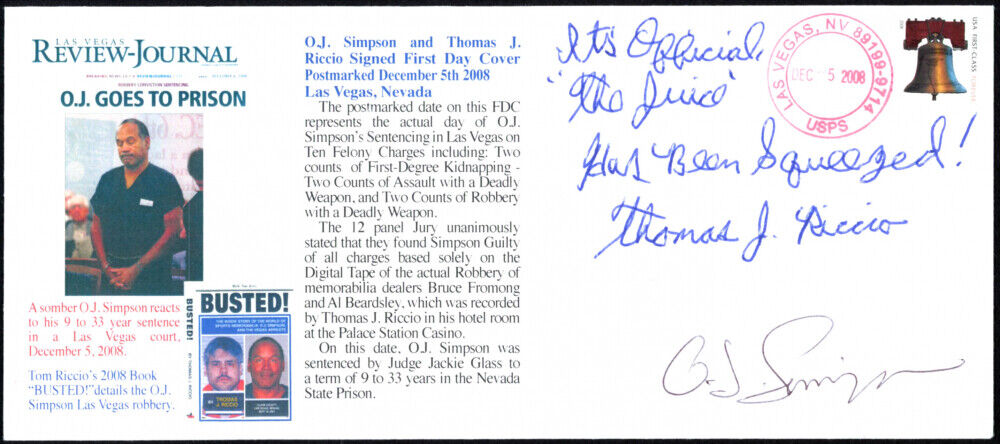 LAS VEGAS
REVIEW-JOURNAL
ROBBERY CONVICTION SENTENCING
O.J. GOES TO PRISON
A somber O.J. Simpson reacts
to his 9 to 33 year sentence
in a Las Vegas court,
December 5, 2008.
Tom Riccio's 2008 Book
"BUSTED!" details the O.J.
Simpson Las Vegas robbery.
BUSTED!
BUSTED!
THE INSIDE STORY OF THE WORLD OF
SPORTS MEMORABILIA, O.J. SIMPSON,
AND THE VEGAS ARRESTS
BY THOMAS J. RICCIO
BY THOMAS
J. RICCIO
O.J. Simpson and Thomas J.
Riccio Signed First Day Cover
Postmarked December 5th 2008
Las Vegas, Nevada
The postmarked date on this FDC
represents the actual day of O.J.
Simpson's Sentencing in Las Vegas on
Ten Felony Charges including: Two
counts of First-Degree Kidnapping -
Two Counts of Assault with a Deadly
Weapon, and Two Counts of Robbery
with a Deadly Weapon.
The 12 panel Jury unanimously
stated that they found Simpson Guilty
of all charges based solely on the
Digital Tape of the actual Robbery of
memorabilia dealers Bruce Fromong
and Al Beardsley, which was recorded
by Thomas J. Riccio in his hotel room
at the Palace Station Casino.
On this date, O.J. Simpson was
sentenced by Judge Jackie Glass to
a term of 9 to 33 years in the Nevada
State Prison.
It's Official,
"The Juice"
Has Been Squeezed!
Thomas J. Riccio
O.J. Simpson
LAS VEGAS, NV 89199-9714
DEC - 5 2008
USPS
USA FIRST-CLASS FOREVER